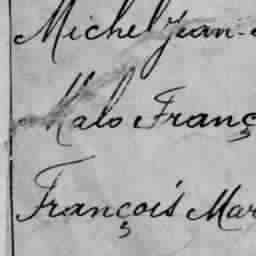 Michel Jean-
Malo Franç
François Mar